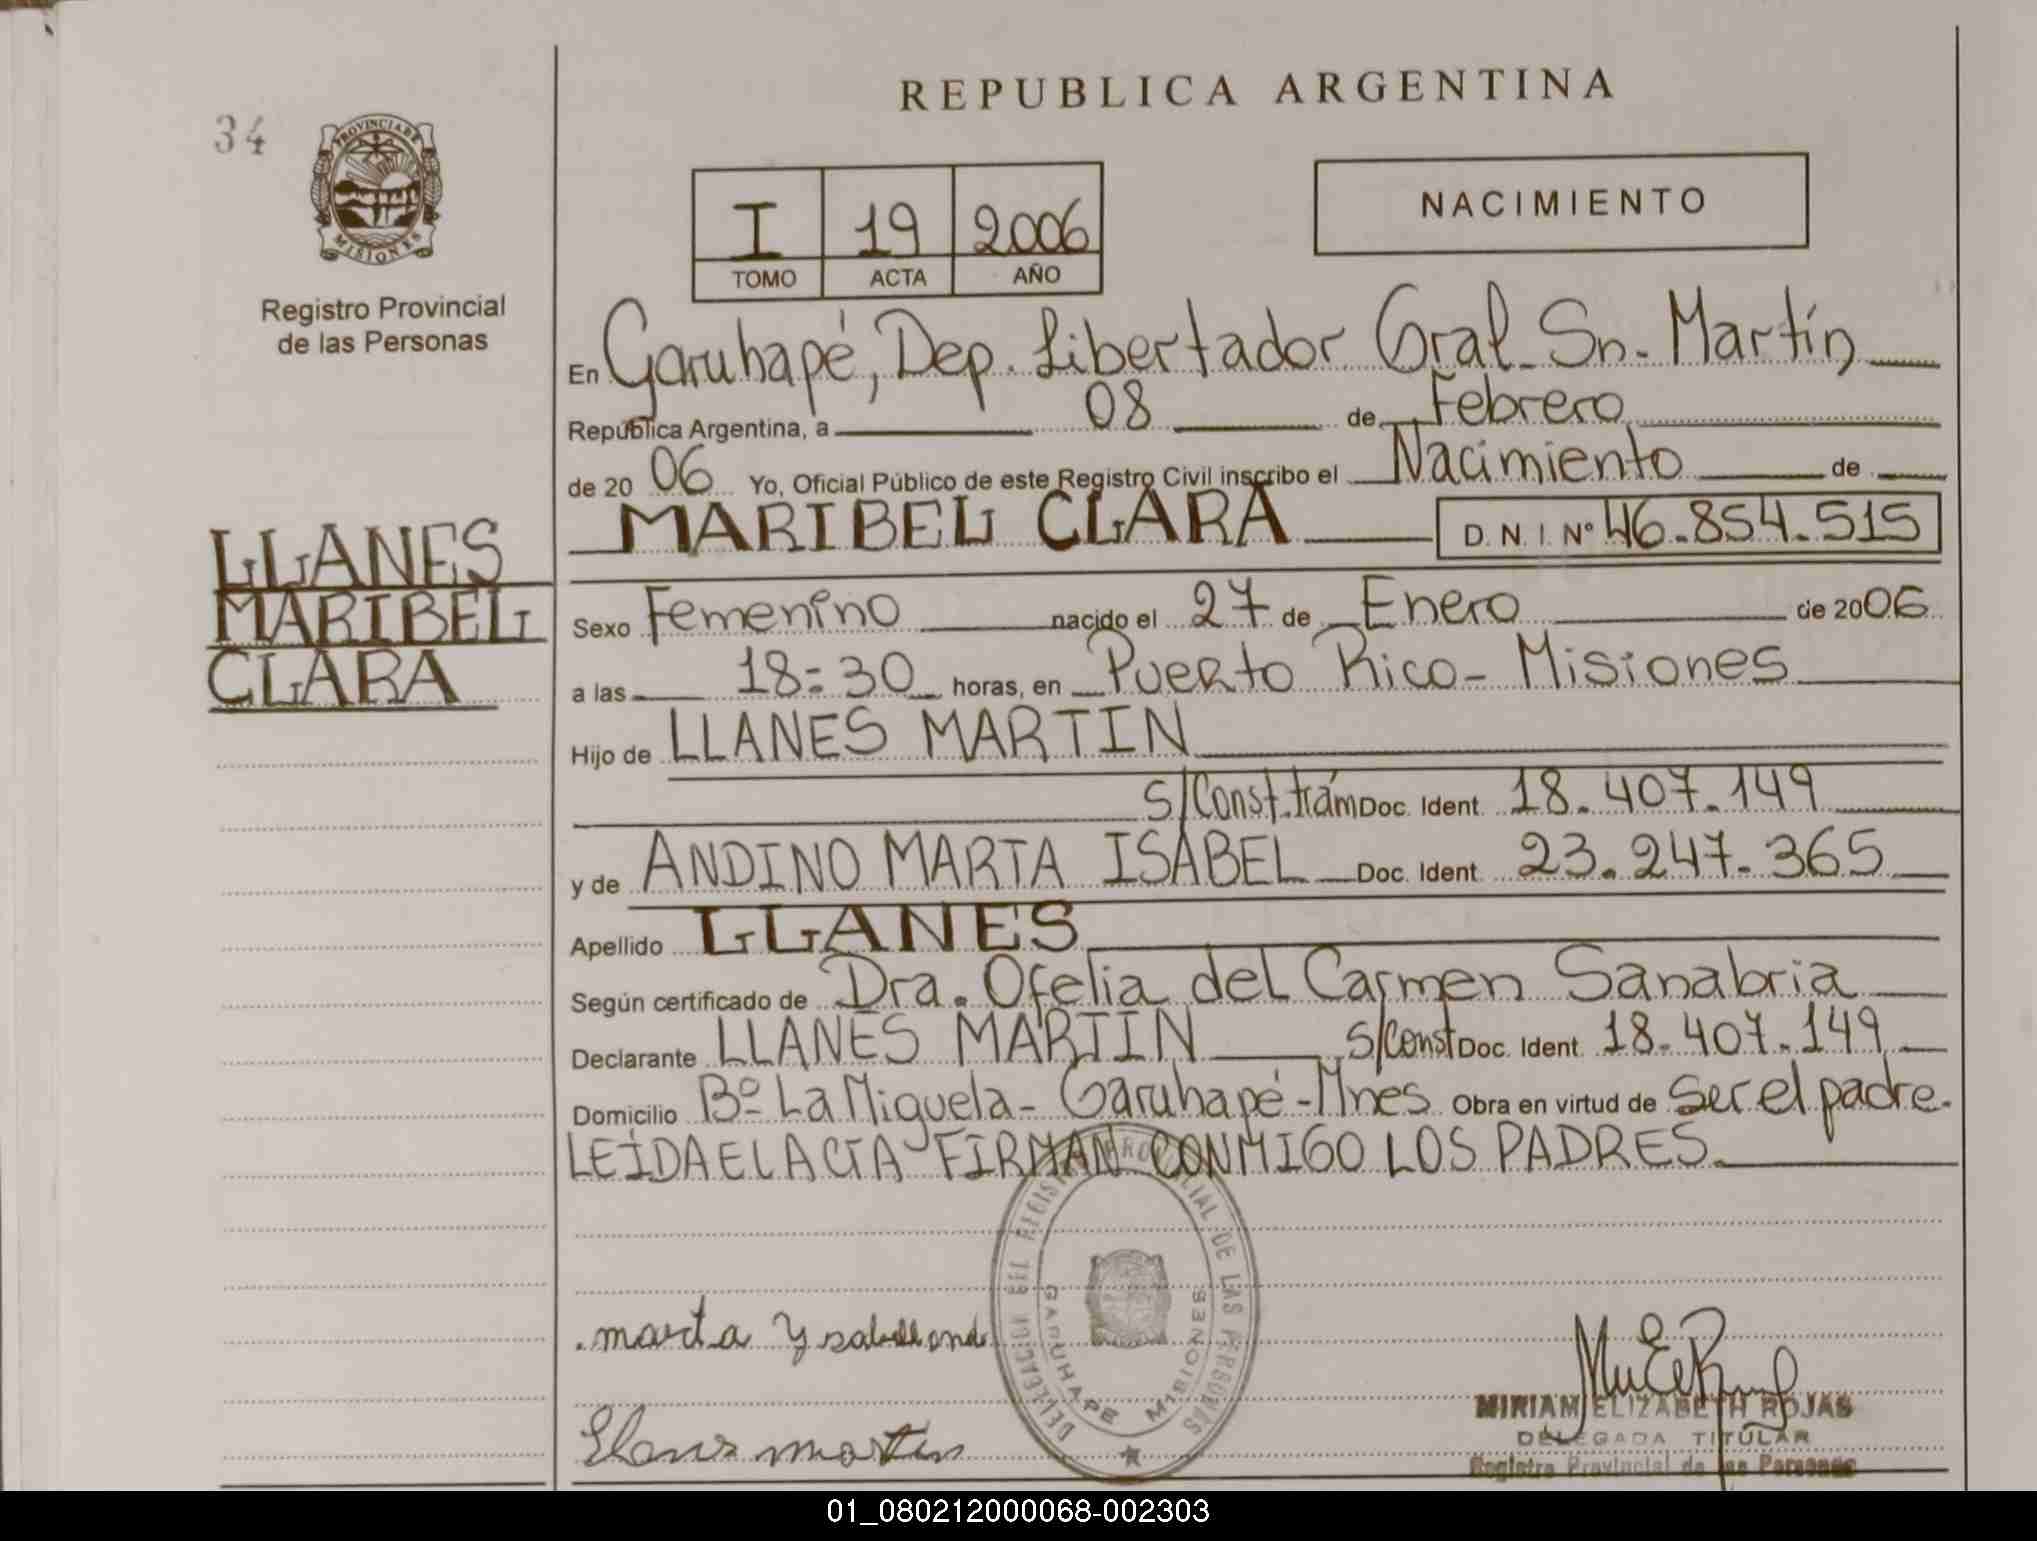 34
PROVINCIA DE
MISIONES
Registro Provincial
de las Personas
REPUBLICA ARGENTINA
I 19 2006
TOMO ACTA AÑO
NACIMIENTO
En Garuhapé, Dep. Libertador Gral. Sn. Martín
República Argentina, a 08 de Febrero
de 20 06 Yo, Oficial Público de este Registro Civil inscribo el Nacimiento de
MARIBEL CLARA D. N. I. Nº 46.854.515
LLANES
MARIBEL
CLARA
Sexo Femenino nacido el 27 de Enero de 2006
a las 18:30 horas, en Puerto Rico - Misiones
Hijo de LLANES MARTIN
s/Const.trám Doc. Ident. 18.407.149
y de ANDINO MARTA ISABEL Doc. Ident. 23.247.365
Apellido LLANES
Según certificado de Dra. Ofelia del Carmen Sanabria
Declarante LLANES MARTIN s/Const Doc. Ident. 18.407.149
Domicilio Bº La Miguela - Garuhapé - Mnes Obra en virtud de Ser el padre.
LEÍDA EL ACTA FIRMAN CONMIGO LOS PADRES.
DELEGACION DEL REGISTRO PROVINCIAL DE LAS PERSONAS
GARUHAPE MISIONES
marta Ysabel
Llanes martin
MIRIAM ELIZABETH ROJAS
DELEGADA TITULAR
Registro Provincial de las Personas
01_080212000068-002303